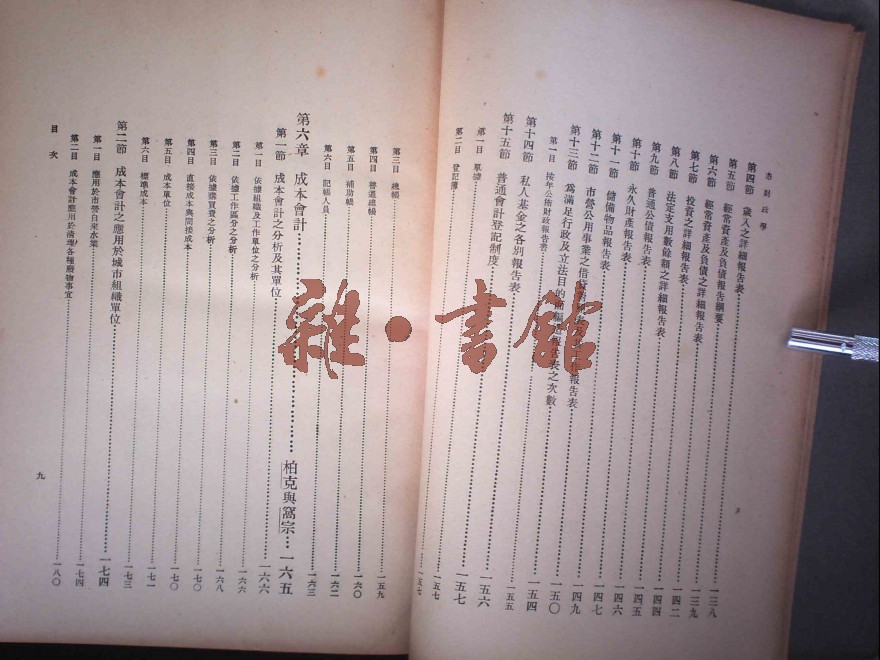 市財政學
第四節 歲入之詳細報告表 一三八
第五節 經常資產及負債報告綱要
第六節 經常資產及負債之詳細報告表 一三九
第七節 投資之詳細報告表
第八節 法定支用數餘額之詳細報告表 一四二
第九節 普通公債報告表 一四四
第十節 永久財產報告表 一四五
第十一節 儲備物品報告表 一四六
第十二節 市營公用事業之借貸 報告表 一四七
第十三節 爲滿足行政及立法目的 報告表之次數 一四九
第一目 按年公佈財政報告書 一五〇
第十四節 私人基金之各別報告表 一五四
第十五節 普通會計登記制度 一五五
第一目 單據 一五六
第二目 登記簿 一五七
第三目 總帳 一五九
第四目 普通總帳
第五目 補助帳 一六〇
第六目 記帳人員 一六二
第六章 成本會計 柏克與窩宗 一六五
第一節 成本會計之分析及其單位
第一目 依據組織及工作單位之分析 一六六
第二目 依據工作區分之分析 一六六
第三目 依據購買費之分析 一六八
第四目 直接成本與間接成本 一七〇
第五目 成本單位 一七〇
第六目 標準成本 一七一
第二節 成本會計之應用於城市組織單位 一七三
第一目 應用於市營自來水業 一七四
第二目 成本會計應用於清理各種廢物事宜 一七四
一八〇
目次
九
雜·書館